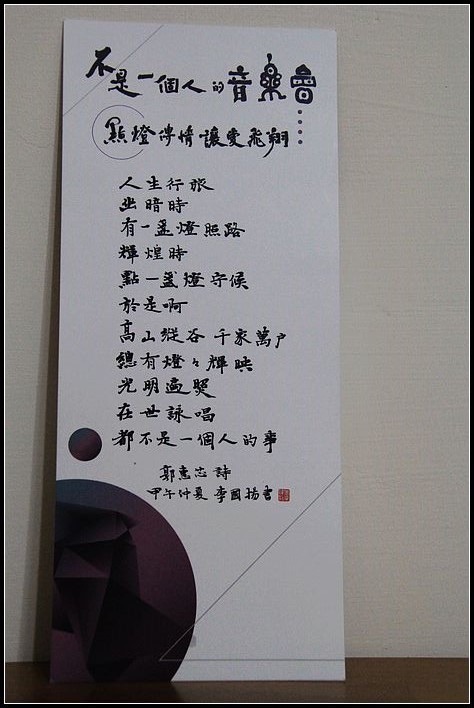 不是一個人的音樂會
點燈傳情 讓愛飛翔
人生行旅
幽暗時
有一盞燈照路
輝煌時
點一盞燈守候
於是啊
高山縱谷 千家萬戶
總有燈燈輝映
光明
在世詠唱
都不是一個人的事
郭惠芯 詩
甲午仲夏 李國揚書